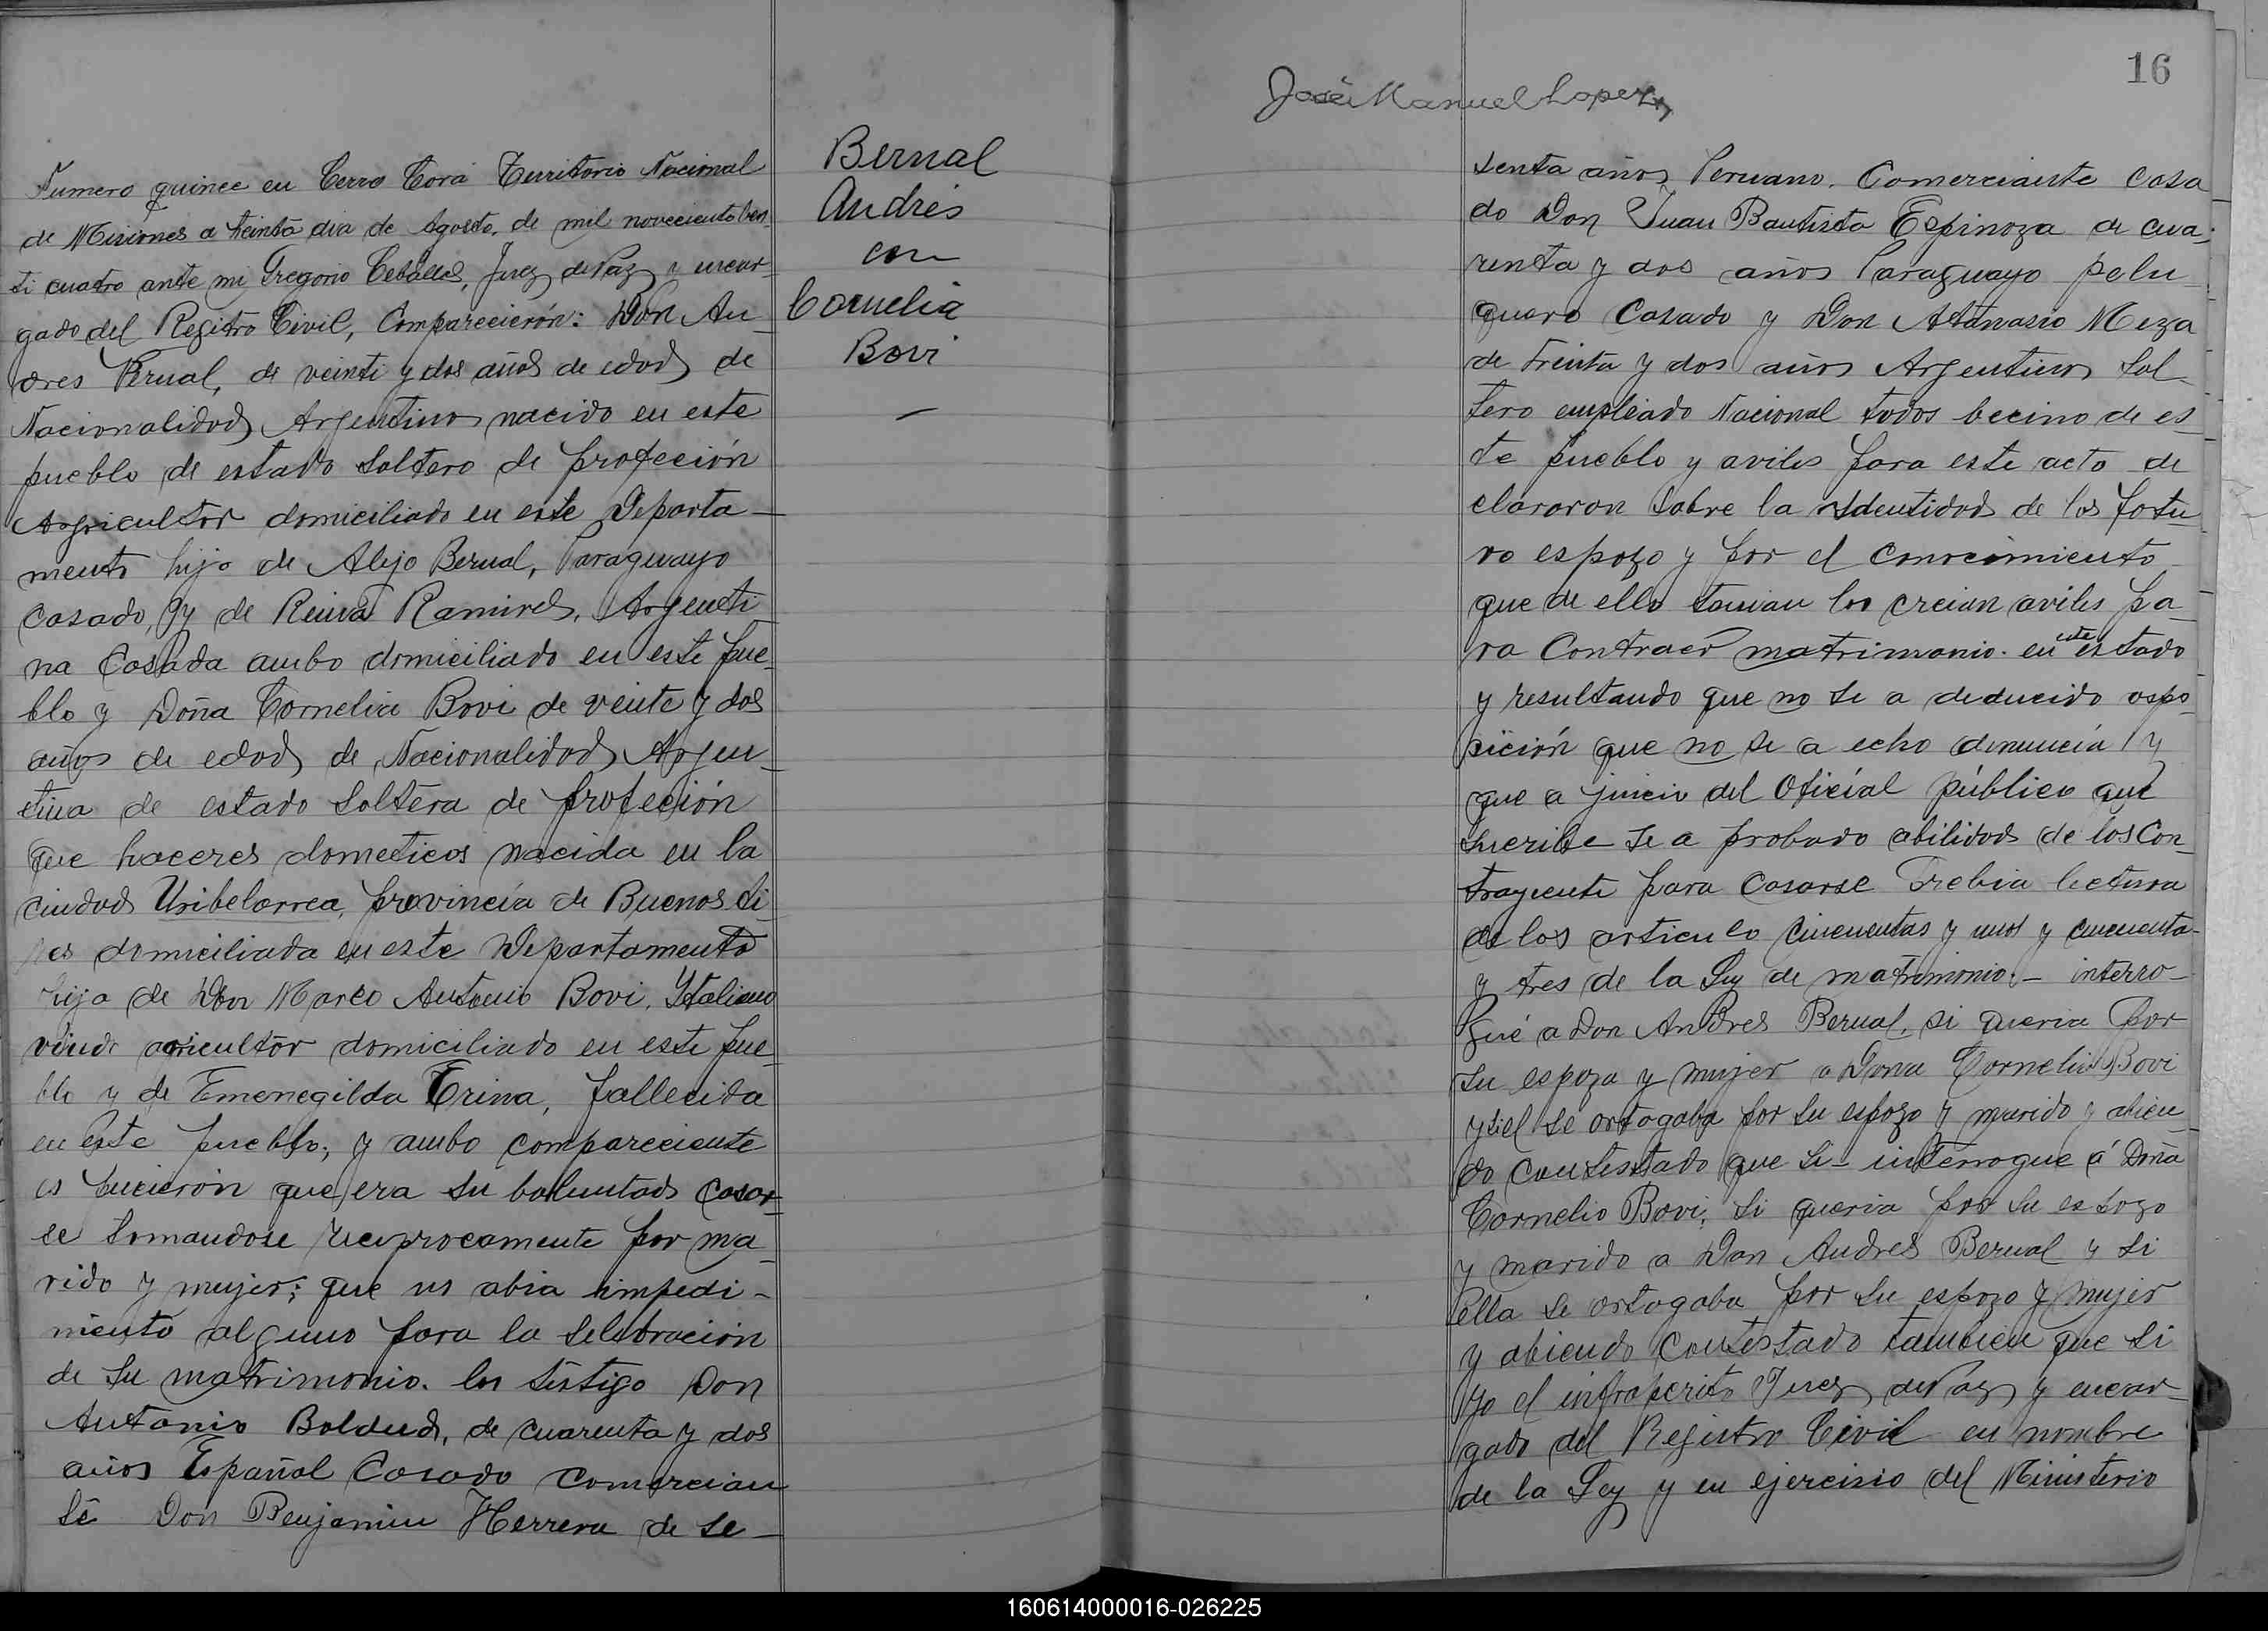 Numero quince en Cerro Corá Territorio Nacional
de Misiones a treinta dia de Agosto, de mil novecientos ven
ti cuatro ante mi Gregorio Ceballos, Juez de Paz y encar-
gado del Registro Civil, Comparecierón: Don An-
dres Bernal, de veinti y dos años de edad de
Nacionalidad Argentino nacido en este
pueblo de estado soltero de profeción
Agricultor domiciliado en este Departa-
mento hijo de Alejo Bernal, Paraguayo
casado, y de Reina Ramires, Argenti
na Casada ambo domiciliado en este pue-
blo y Doña Cornelia Bovi de veinte y dos
años de edad de Nacionalidad Argen-
tina de estado soltera de profeción
que haceres dometicos nacida en la
ciudad Uribelarrea, provincía de Buenos Ai
res domiciliada en este Departamento
hija de Don Marco Antonio Bovi, Ytaliano
viudo agricultor domiciliado en este pue-
blo y de Emenegilda Trina, fallecida
en este pueblo; y ambo compareciente
es pucierón que era su boluntad casar-
se tomandose reciprocamente por ma-
rido y mujer; que no abia impedi-
miento alguno para la selebración
de su matrimonio. los testigo Don
Antonio Boldud, de cuarenta y dos
años Español Casado comercian
te Don Benjamin Herrera de se-
Bernal
Andrés
con
Cornelia
Bovi
—
16
José Manuel Lopez
senta años Peruano. Comerciante casa
do Don Juan Bautista Espinoza de cua-
renta y dos años Paraguayo pelu
quero Casado y Don Atanasio Meza
de treinta y dos años Argentino sol-
tero empleado Nacional todos becino de es-
te pueblo y aviles para este acto de
clararon sobre la identidad de los fotu
ro espozo y por el conocimiento
que de ello tenian los creian aviles pa-
ra Contraer matrimonio. en este estado
y resultando que no se a deducido ospo-
sición que no se a echo denuncia y
que a juicio del Oficíal público que
sucribe se a probado abilidad de los con-
trayente para casarse Prebia lectura
de los articulo cincuentas y unos y cincuenta-
y tres de la Ley de matrimonio.- interro-
gué a Don Andres Bernal, si queria por
su espoza y mujer a Dona Cornelia Bovi
y si el se ortogaba por su espozo y marido y abien-
do contestado que si- interrogue á Doña
Cornelio Bovi, si queria por su espozo
y marido a Don Andres Bernal y si
ella se ortogaba por su espozo y mujer
y abiendo contestado tambien que si
yo el infraperito Juez de Paz y encar-
gado del Registro Civil en nombre
de la Ley y en ejercisio del Ministerio
160614000016-026225